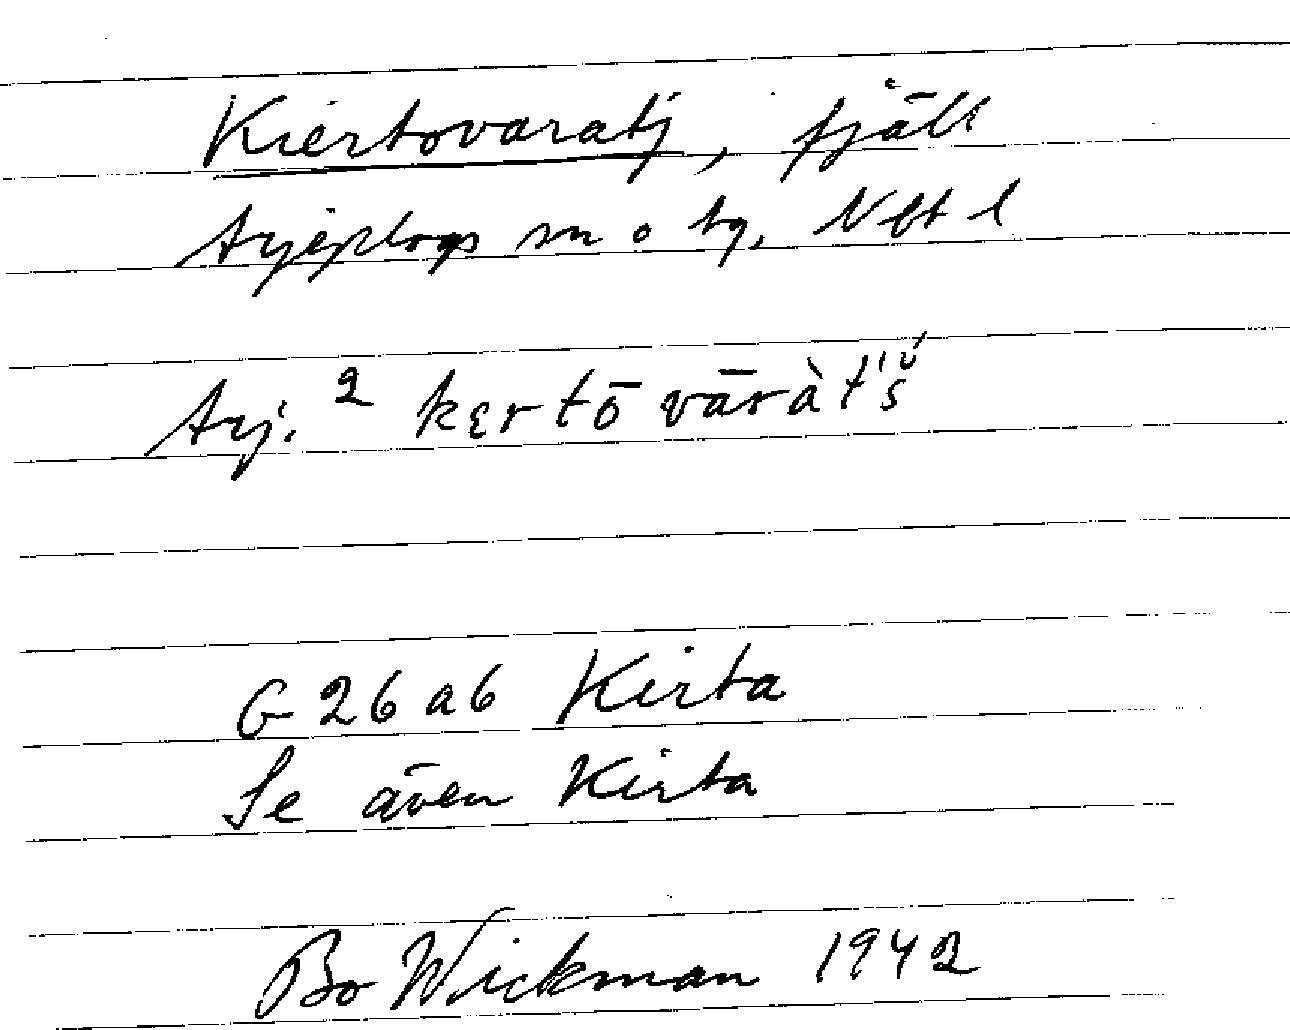 Kiertovaratj, fjäll
Arjeplogs sn o tg, Nbt l
Arj. 2 kęrtō vāràt'š́
G 26 a b Kirta
Se även Kirta
Bo Wickman 1942